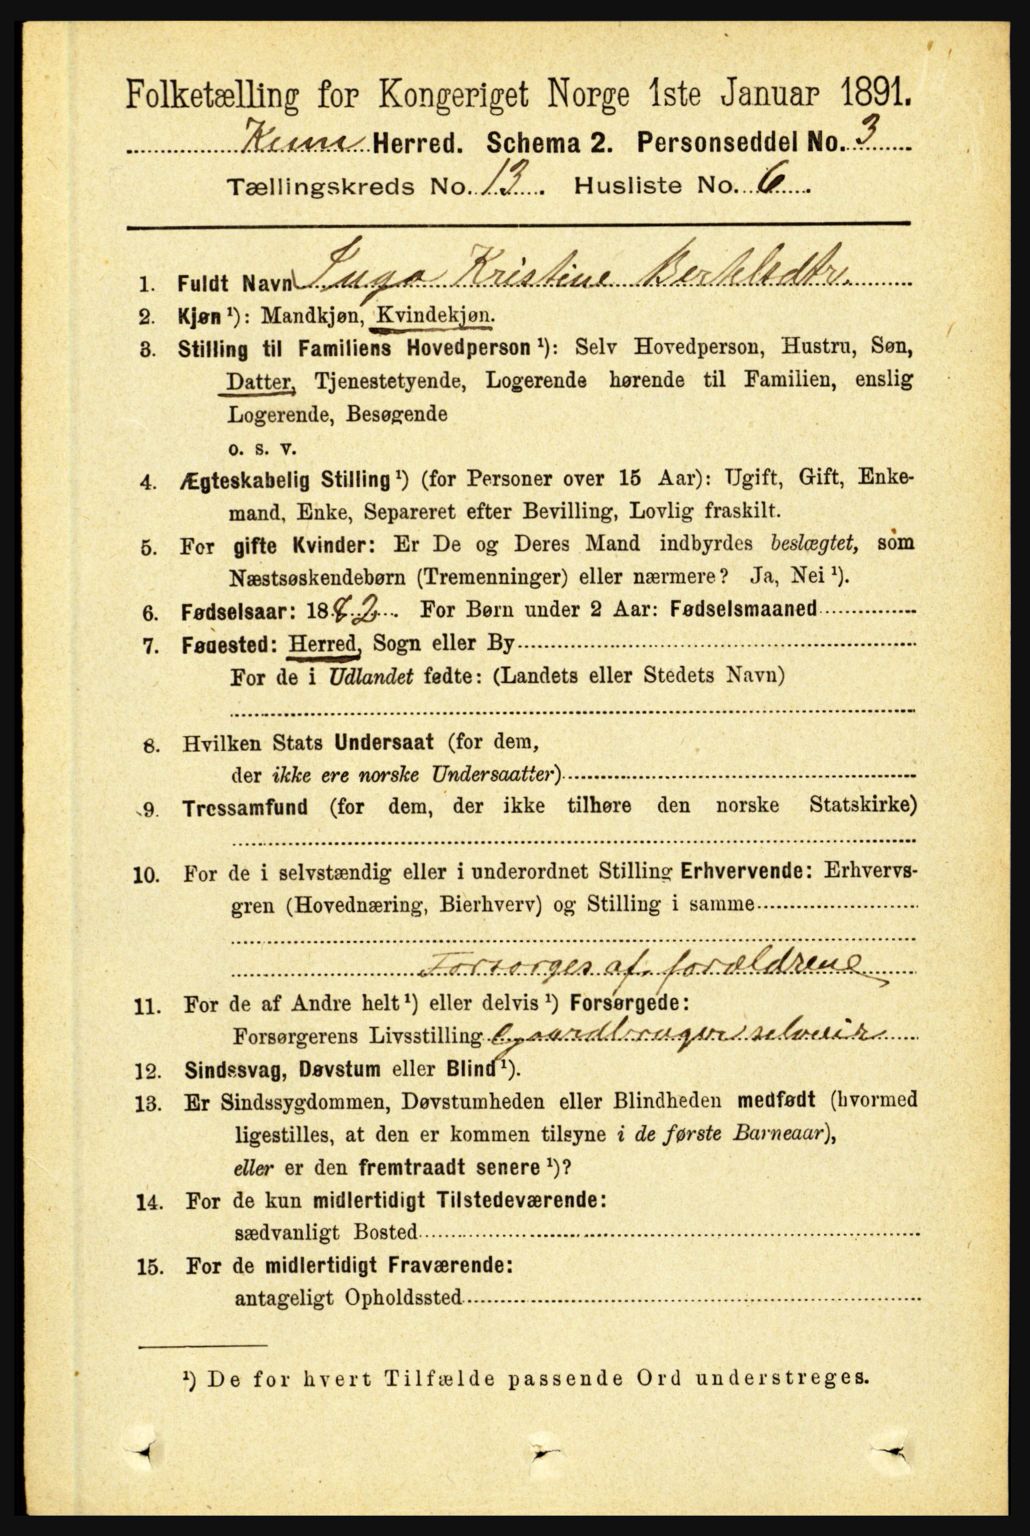 Folketælling for Kongeriget Norge 1ste Januar 1891.
Kinn Herred. Schema 2. Personseddel No. 3
Tællingskreds No. 13. Husliste No. 6.
1. Fuldt Navn Inga Kristine Bertelsdtr.
2. Kjøn ¹): Mandkjøn, Kvindekjøn.
3. Stilling til Familiens Hovedperson ¹): Selv Hovedperson, Hustru, Søn,
Datter, Tjenestetyende, Logerende hørende til Familien, enslig
Logerende, Besøgende
o. s. v.
4. Ægteskabelig Stilling ¹) (for Personer over 15 Aar): Ugift, Gift, Enke-
mand, Enke, Separeret efter Bevilling, Lovlig fraskilt.
5. For gifte Kvinder: Er De og Deres Mand indbyrdes beslægtet, som
Næstsøskendebørn (Tremenninger) eller nærmere? Ja, Nei ¹).
6. Fødselsaar: 1882. For Børn under 2 Aar: Fødselsmaaned
7. Fødested: Herred, Sogn eller By
For de i Udlandet fødte: (Landets eller Stedets Navn)
8. Hvilken Stats Undersaat (for dem,
der ikke ere norske Undersaatter)
9. Trossamfund (for dem, der ikke tilhøre den norske Statskirke)
10. For de i selvstændig eller i underordnet Stilling Erhvervende: Erhvervs-
gren (Hovednæring, Bierhverv) og Stilling i samme
Forsørges af forældrene
11. For de af Andre helt ¹) eller delvis ¹) Forsørgede:
Forsørgerens Livsstilling Gaardbruger selveier
12. Sindssvag, Døvstum eller Blind ¹).
13. Er Sindssygdommen, Døvstumheden eller Blindheden medfødt (hvormed
ligestilles, at den er kommen tilsyne i de første Barneaar),
eller er den fremtraadt senere ¹)?
14. For de kun midlertidigt Tilstedeværende:
sædvanligt Bosted
15. For de midlertidigt Fraværende:
antageligt Opholdssted
¹) De for hvert Tilfælde passende Ord understreges.